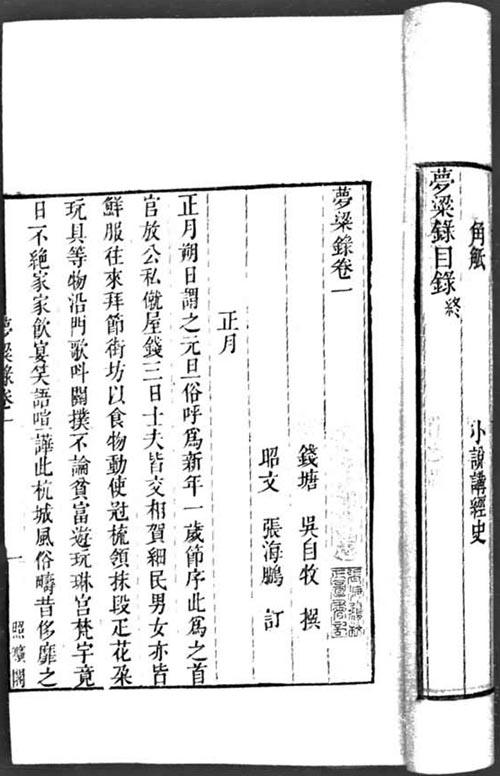 角觝
小說講經史
夢粱錄目錄終
夢粱錄卷一
錢塘 吳自牧 撰
昭文 張海鵬 訂
正月
正月朔日謂之元旦俗呼為新年一歲節序此為之首
官放公私僦屋錢三日士夫皆交相賀細民男女亦皆
鮮服往來拜節街坊以食物動使冠梳領抹段疋花朶
玩具等物沿門歌呌關撲不論貧富遊玩琳宮梵宇竟
日不絶家家飲宴笑語喧譁此杭城風俗疇昔侈靡之
夢粱錄卷一
一
照曠閣